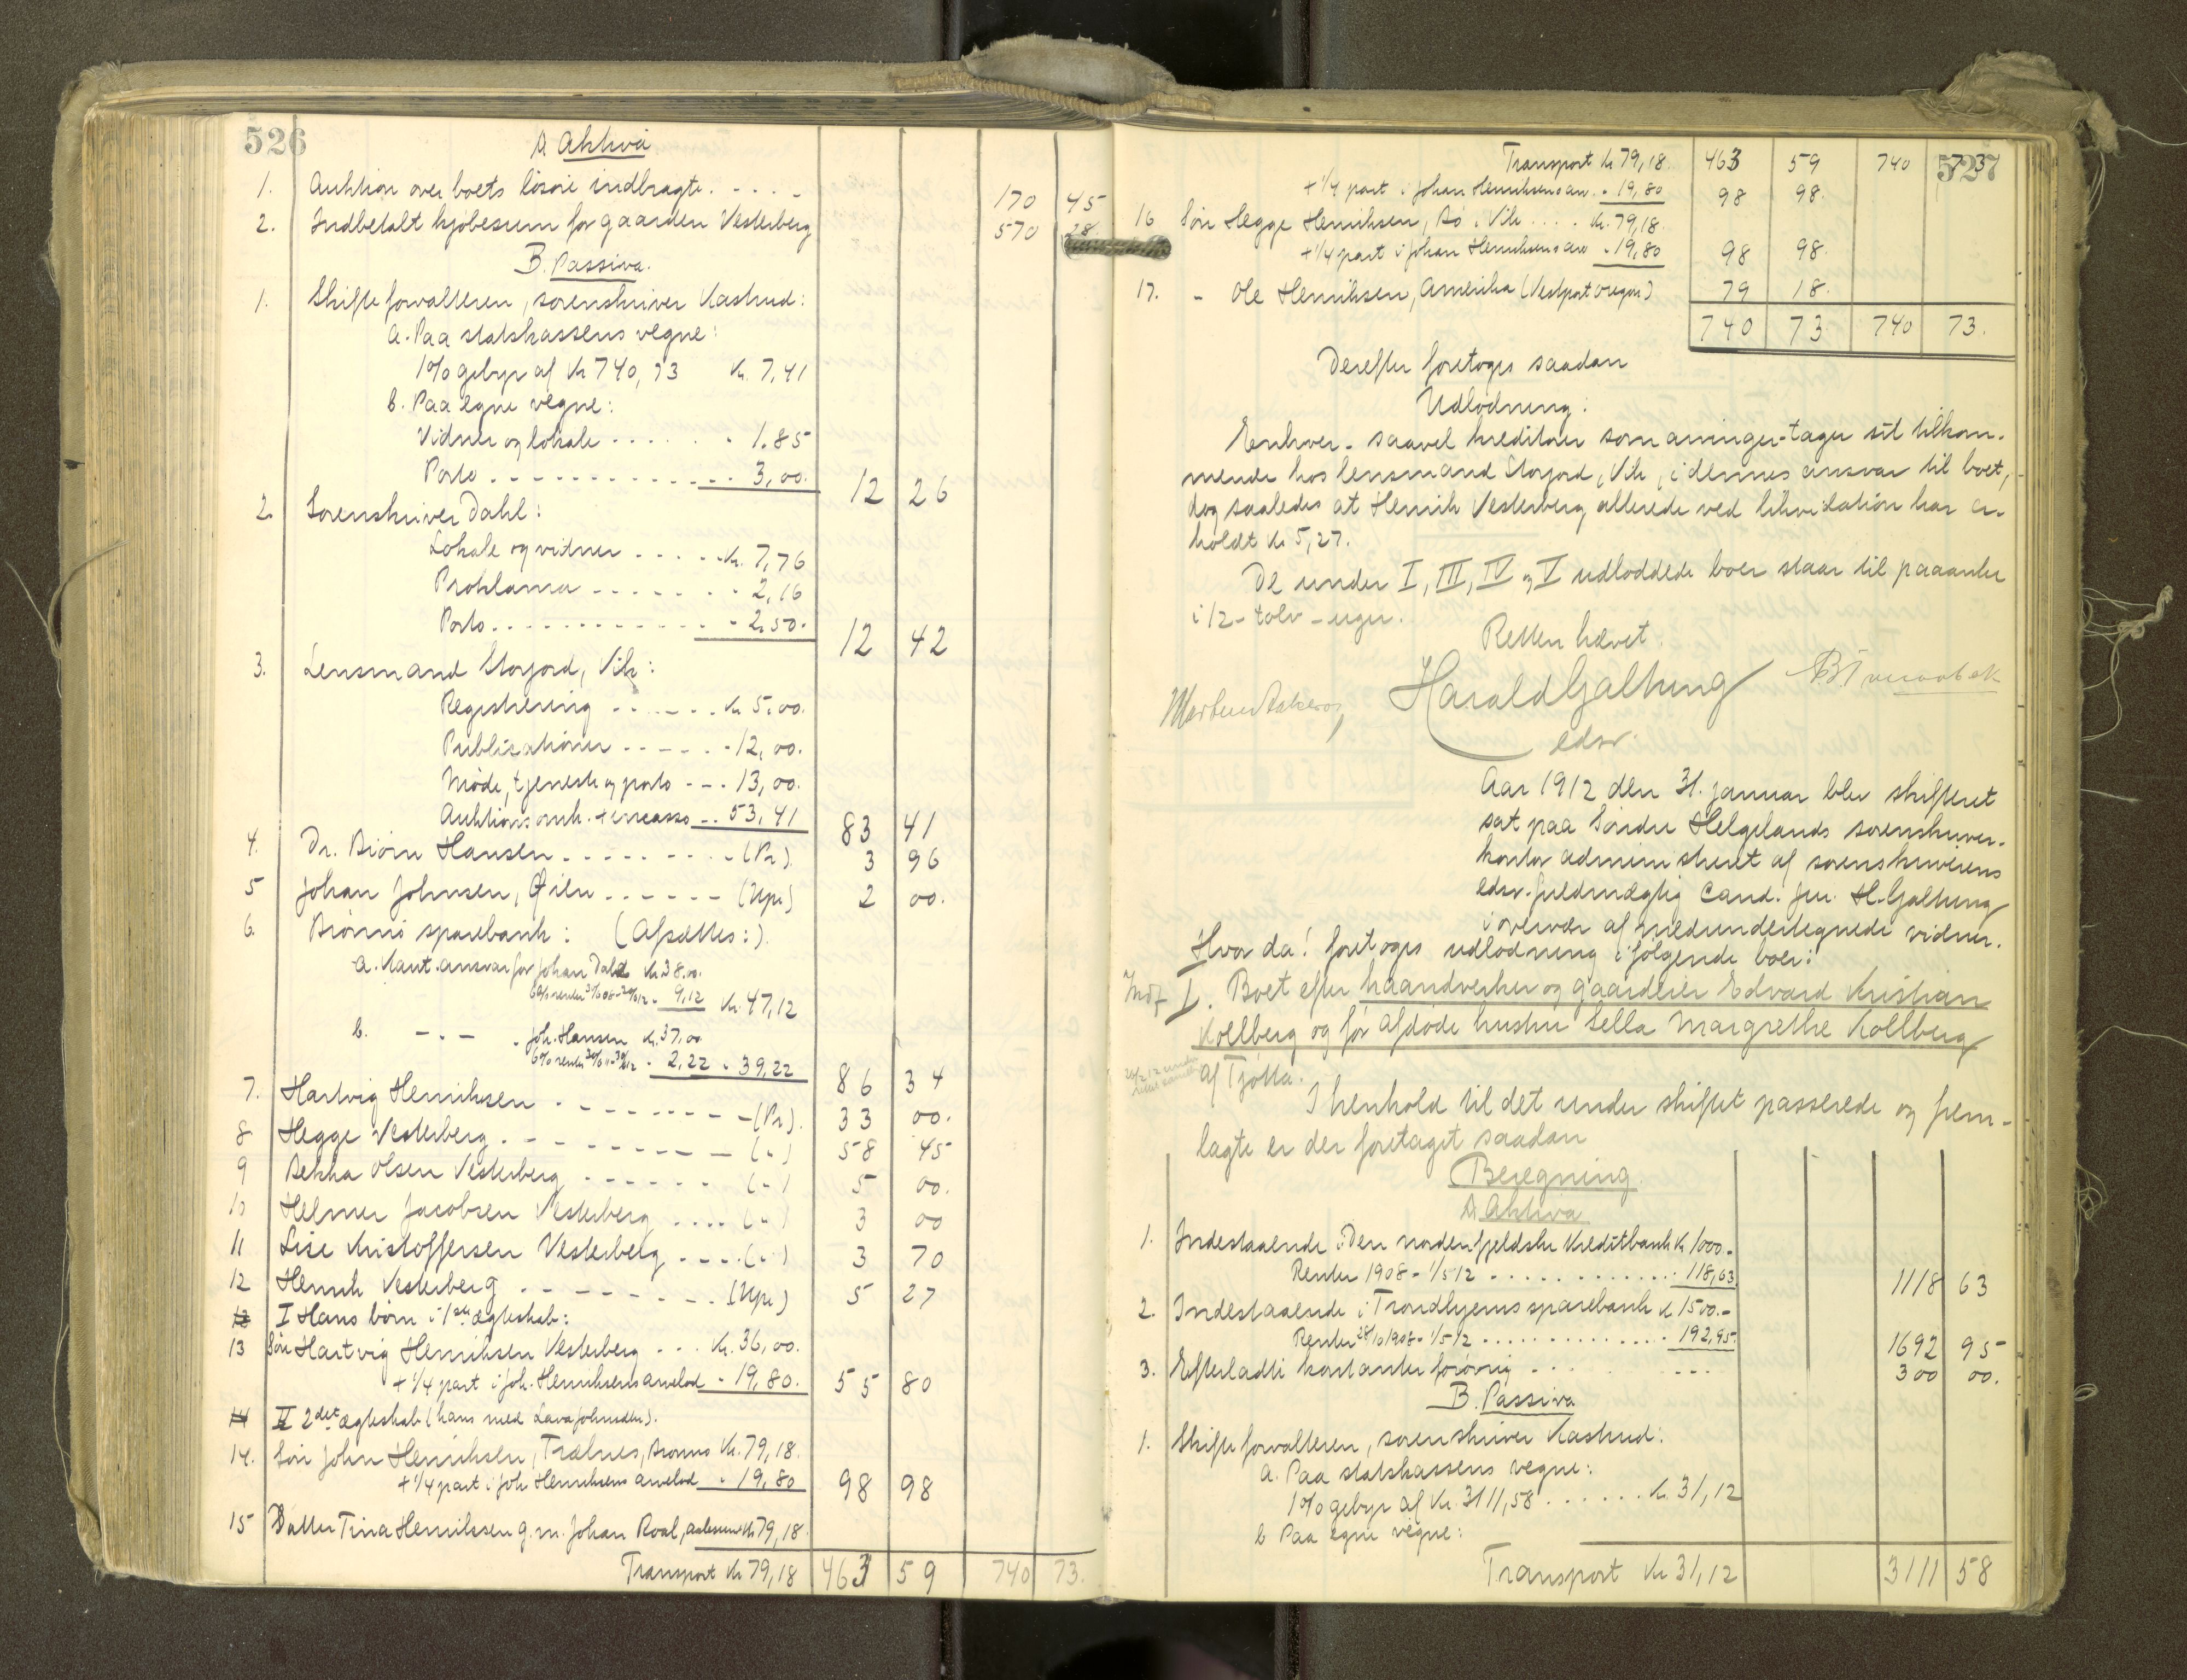 526
A. Aktiva
1. Auktion over boets lösöre indbragte. - - - - 170 45
2. Indbetalt kjøbesum for gaarden Vesterberg 570 28
B. Passiva.
1. Skifteforvalteren, sorenskriver Kastrud:
a. Paa statskassens vegne:
1% gebyr af Kr 740,73 Kr. 7,41
b. Paa egne vegne:
Vidner og lokale - - - - - - 1.85
Porto - - - - - - - - - - - 3,00. 12 26
2. Sorenskriver Dahl:
Lokale og vidner - - - - - Kr. 7,76
Proklama - - - - - - - 2,16
Porto - - - - - - - - - - - - 2,50. 12 42
3. Lensmand Storjord, Vik:
Registrering - - - - - Kr 5,00.
Publikationer - - - - - - 12,00.
Møde, tjeneste og porto - - - 13,00.
Auktionsomk. + incasso - - 53,41 83 41
4. Dr. Biørn Hansen - - - - - - - - - (Pr) 3 96
5 Johan Johnsen, - - - - - - (Upr) 2 00.
6. Brønnø sparebank: (Afsættes:).
a. Kaut. ansvar for Johan Dahl Kr 38,00.
6% renter 9,12 Kr. 47,12
b. - - - Joh. Hansen Kr. 37,00
6% renter 2,22 - 39,22 86 34
7. Hartvig Henriksen - - - - - - - - - (Pr). 33 00.
8 Hegge Vesterberg - - - - - - - - (") 58 45
9 Rekka Olsen Vesterberg - - - - - - (") 5 00.
10 Helmer Jacobsen Vesterberg - - - - (") 3 00
11 Lise Kristoffersen Vesterberg - - - - (") 3 70
12 Henrik Vesterberg - - - - - - - - - (Upr) 5 27
I Hans børn i 1ste ægteskab:
13 Søn Hartvig Henriksen Vesterberg - - - Kr. 36,00.
+ 1/4 part i Joh. Henriksens arvelod - 19,80. 55 80
II 2det ægteskab (hans med Lava Johnsdtr).
14. Søn John Henriksen, Trælnes, Brønnø Kr. 79,18.
+ 1/4 part i Joh Henriksens arvelod - 19,80 98 98
15 Datter Tina Henriksen g. m. Johan Roal, Kr 79,18.
Transport Kr 79,18 463 59 740 73.
527
Transport Kr 79,18. 463 59 740 73
+ 1/4 part i Johan Henriksens arv. - 19,80 98 98.
16 Søn Hegge Henriksen, Bø i Vik . . . . Kr. 79,18.
+ 1/4 part i Johan Henriksens arv - 19,80 98 98.
17. - Ole Henriksen, Amerika (Vestport Oregon) 79 18.
740 73 740 73.
Derefter foretoges saadan
Udlodning:
Enhver - saavel kreditorer som arvinger - tager sit tilkom-
mende hos lensmand Storjord, Vik, i dennes ansvar til boet,
dog saaledes at Henrik Vesterberg allerede ved likvidation har er-
holdt Kr 5,27.
De under I, III, IV og V udloddede boer staar til paaanke
i 12 - tolv - uger.
Retten hævet.
Harald Galtung
edsv.
Aar 1912 den 31. januar blev skifteret
sat paa Søndre Helgelands sorenskriver-
kontor administreret af sorenskriverens
edsv. fuldmægtig Cand. jur. H. Galtung
i overvær af medundertegnede vidner.
Hvor da: foretoges udlodning i følgende boer:
I. Boet efter haandverker og gaardeier Edvard Kristian
Kollberg og før afdøde hustru Sella Margrethe Kollberg
af Tjøtta.
I henhold til det under skiftet passerede og frem-
lagte er der foretaget saadan
Beregning.
A. Aktiva
1. Indestaaende i Den nordenfjeldske Kreditbank Kr 1000.-
Renter 1908 - 1/5 12 . . . . . . . . . . . . 118,63 1118 63
2. Indestaaende i Trondhjems sparebank Kr 1500.-
Renter 28/10 1908 - 1/5 12 . . . . . . . . . . . . 192,95. 1692 95
3. Efterladte kontanter forøvrig - - - - - - 300 00.
B. Passiva
1. Skifteforvalteren, sorenskriver Kastrud:
a. Paa statskassens vegne:
1% gebyr af Kr. 3111,58 . . . . . . Kr. 31,12
b Paa egne vegne:
Transport Kr 31,12 3111 58